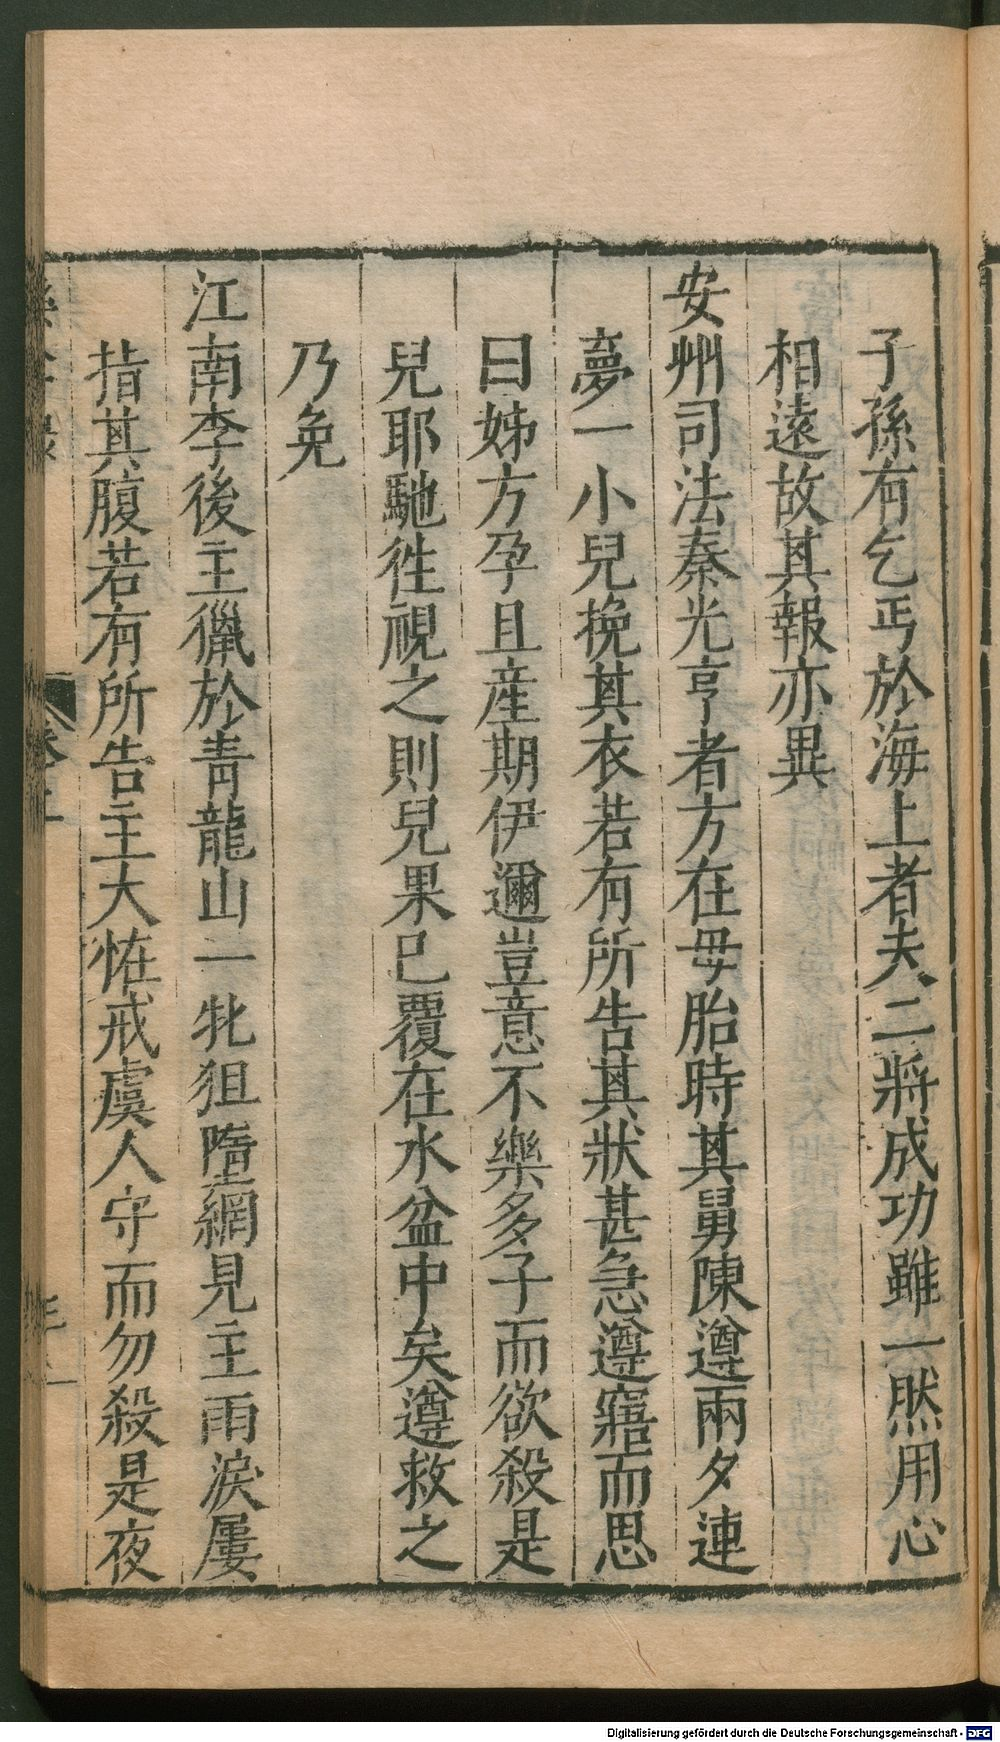 子孫有乞丐於海上者夫二將成功雖一然用心
相遠故其報亦異
安州司法秦光亨者方在母胎時其舅陳遵兩夕連
夢一小兒挽其衣若有所告其狀甚急遵寤而思
曰姊方孕且産期伊邇豈意不樂多子而欲殺是
兒耶馳徃視之則兒果已覆在水盆中矣遵救之
乃免
江南李後主獵於青龍山一牝狙墮網見主雨淚屢
指其腹若有所告主大恠戒虞人守而勿殺是夜
Digitalisierung gefördert durch die Deutsche Forschungsgemeinschaft - DFG